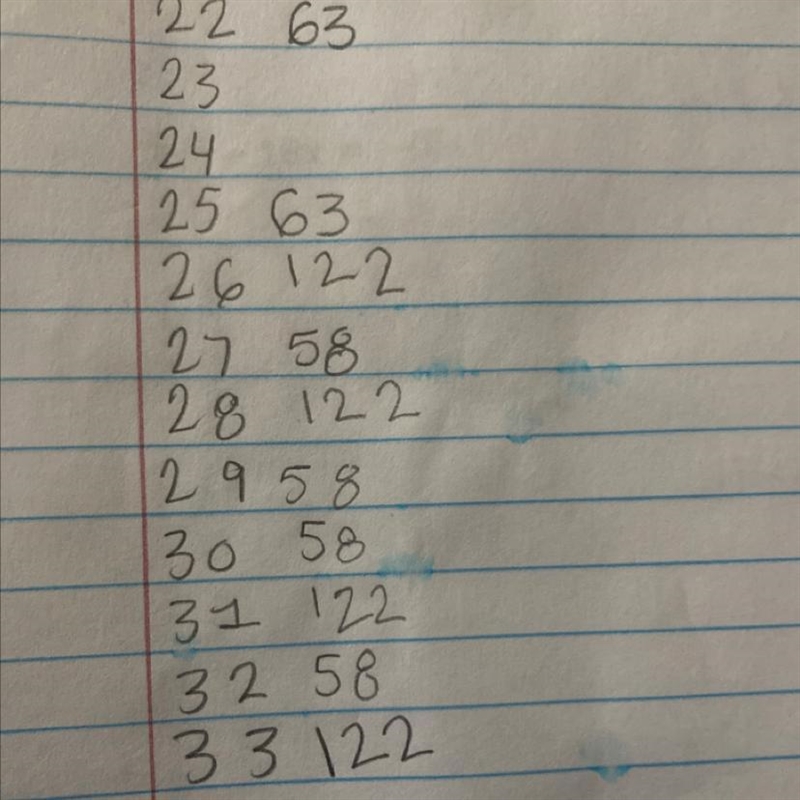 22 63
23
24
25 63
26 122
27 58
28 122
29 58
30 58
31 122
32 58
33 122